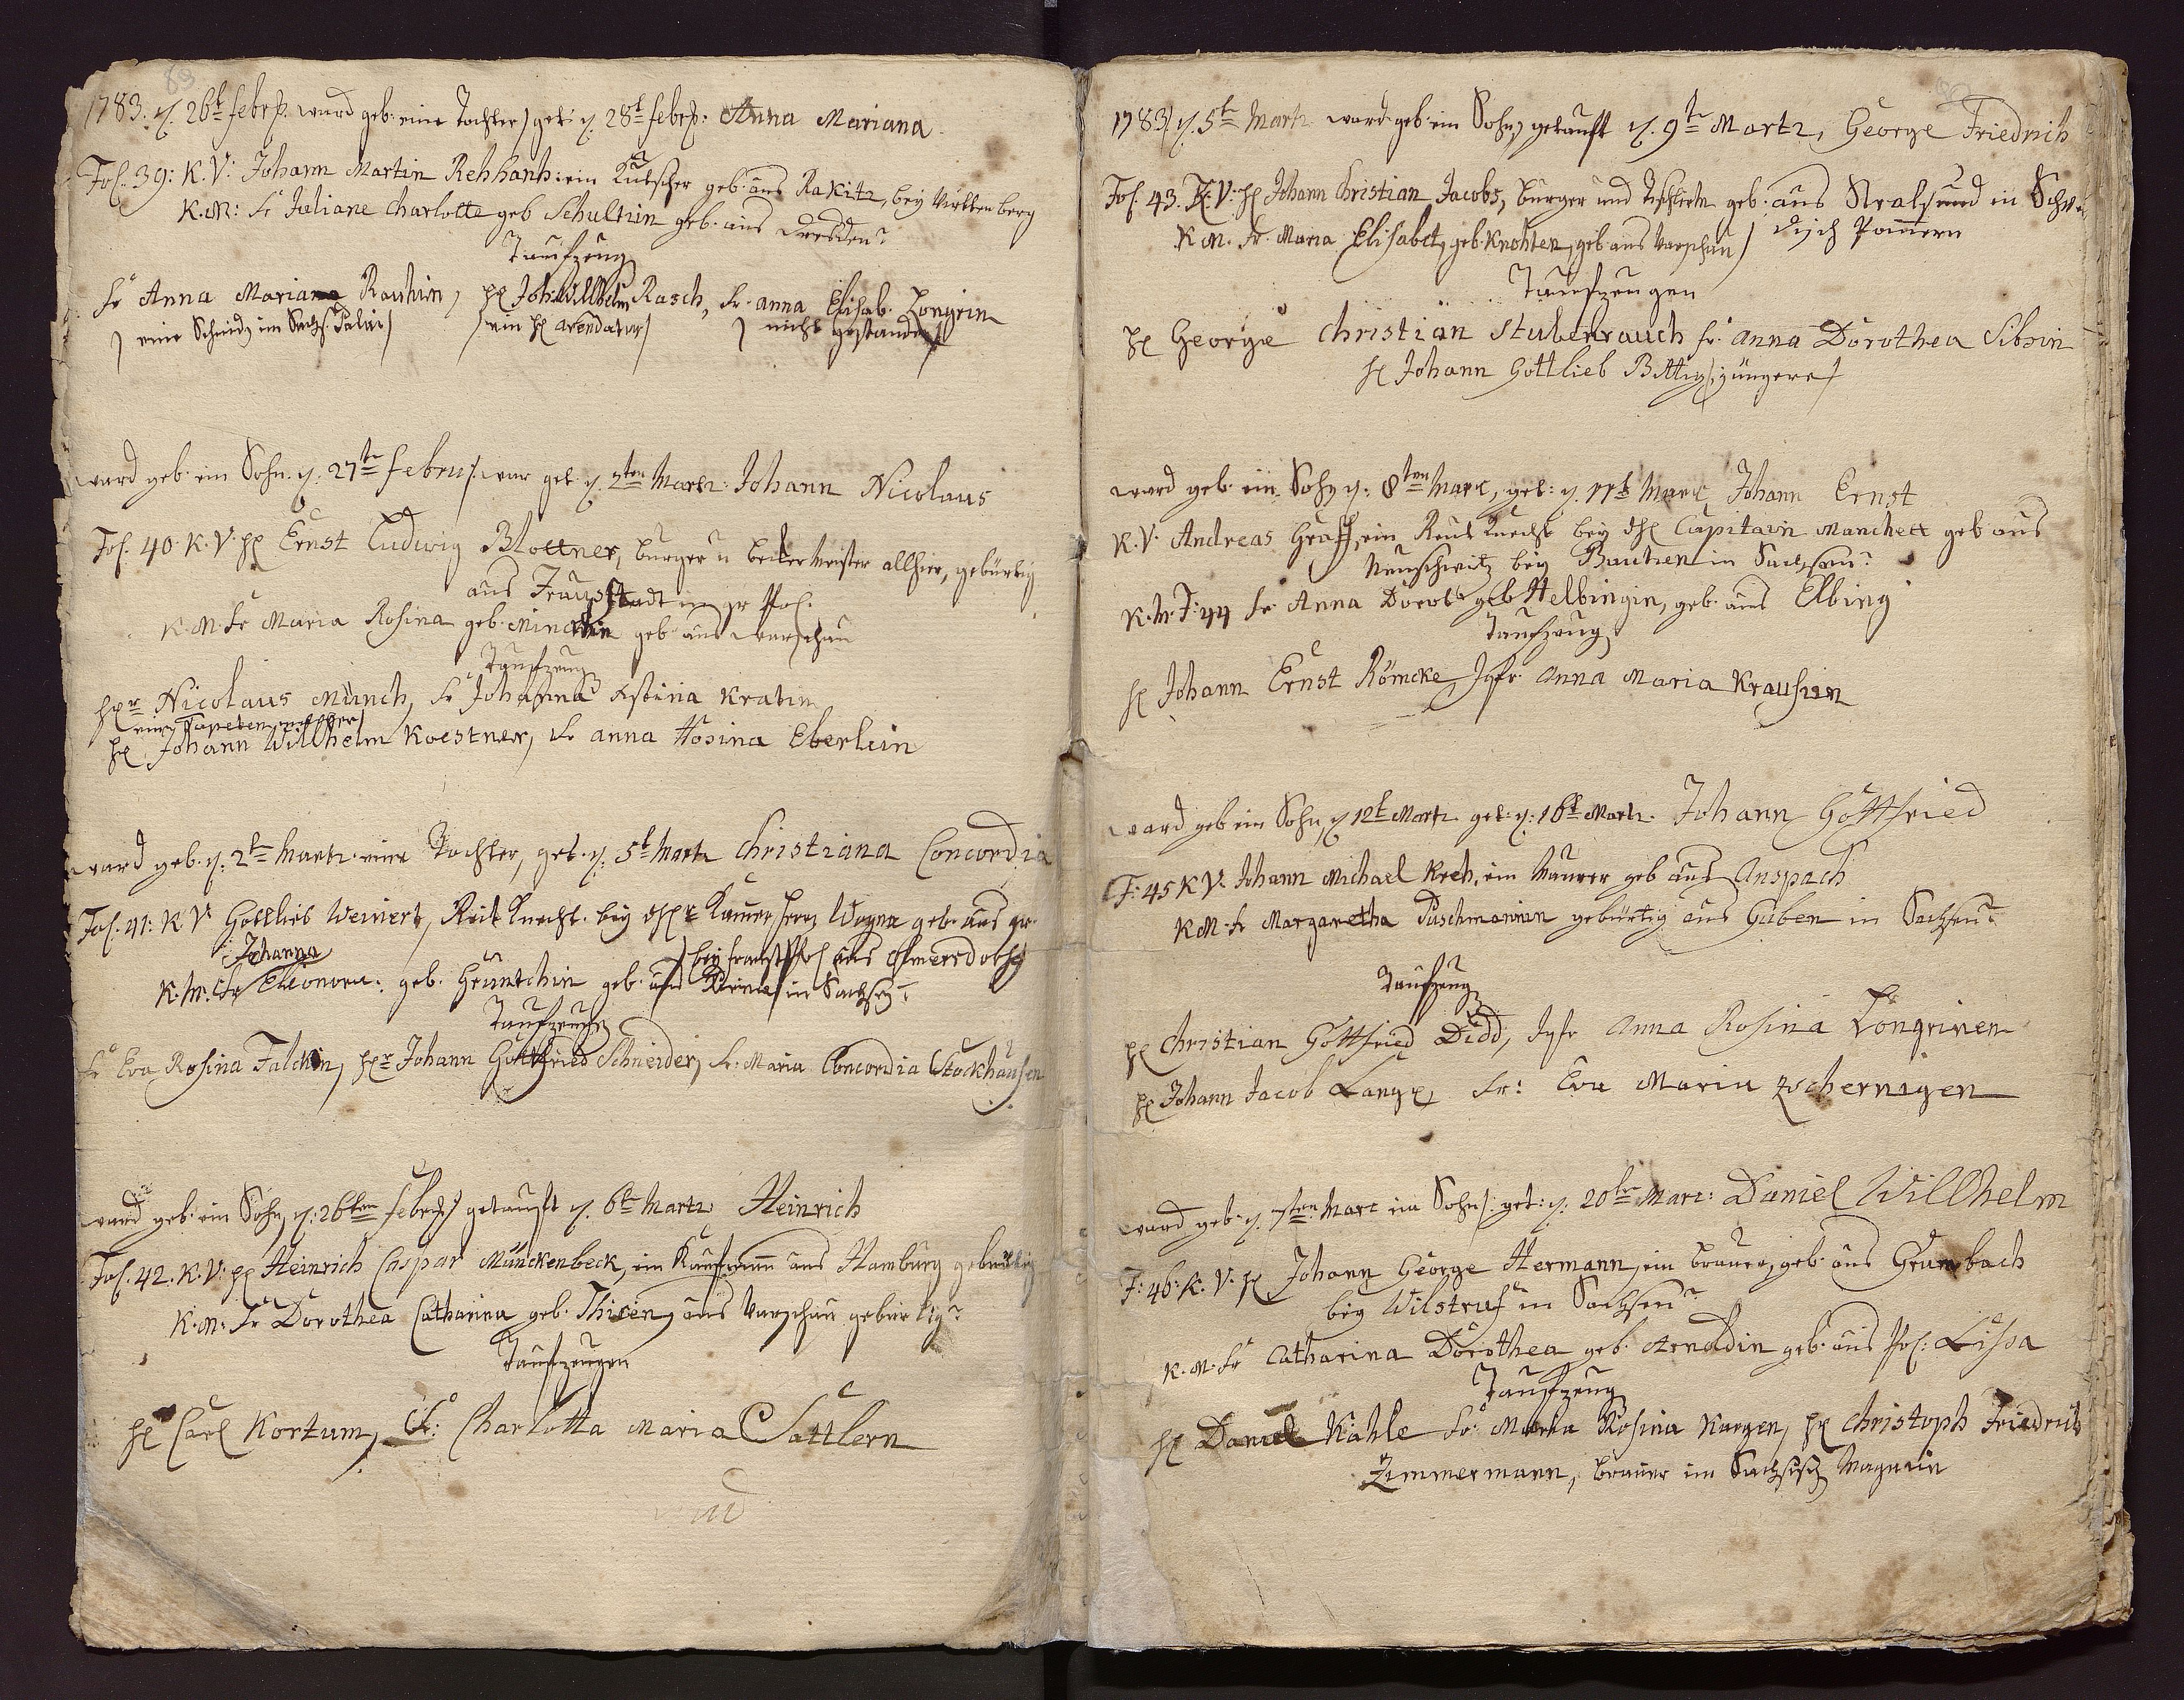 83
1783. d. 26t febr. ward geb. eine Tochter get: d. 28t febr: Anna Mariana
Fol. 39: K. V: Johann Martin Rehhanh: ein Kutscher geb. aus Rakitz, bey Wirttenberg
K. M: Fr Juliane Charlotte geb Schultzin geb. aus Dresden
Taufzeug
Fr Anna Mariana Rauhin, H Joh: Willhelm Rasch, Fr. anna Elisab. Longrin
eine Schneid im Sächs. Palais ein H arendator nicht gestanden
ward geb. ein Sohn. d. 27te febru war get d. 2ten Martz: Johann Nicolaus
Fol. 40. K. V. H Ernst Ludwig Blottner, burger u becker Meister allhier, gebürtig
aus Fraustadt in gr Pol.
K. M. Fr Maria Rosina geb. geb aus Warschau
Taufzeug
Hr Nicolaus Münch, Fr Johanna Kratin
ein Tapetenmacher
H Johann Willhelm Koestner, Fr anna Rosina Eberlein
ward geb. d. 2te Martz eine Tochter, get. d. 5t Martz Christiana Concordia
Fol. 41: K V. Gottlieb Weinert, Reit Knecht bey Hr Kamerherr Wagna geb. aus gr.
bey fraust Pol aus Ulmersdorf
Johanna
K. M. Fr Elionora: geb. Gruntchin geb. aus Pirna in Sachsen
Taufzeugen
Fr Eva Rosina Falckin, Hr Johann Gottfried Schneider, Fr. Maria Concordia Stockhausen
ward geb. ein Sohn, d: 26ten febru getauft d. 6te Martz Heinrich
Fol. 42. K. V: H Heinrich Caspar Munckenbeck, ein Kaufmann aus Hamburg gebürtig
K. M: Fr Dorothea Catharina geb. Thiren, aus Warschau gebürtig
Taufzeugen
H Carl Kortum, Fr: Charlotta Maria Sattlern
1783 d. 5te Martz ward geb ein Sohn, getauft d. 9te Martz, George Friedrich
Fol. 43. K. V: H Johann Christian Jacobs, burger und Tischler geb. aus Stralsund in Schwe
disch Pomern
K M. Fr. Maria Elisabet, geb. Knohten, geb. aus Warschau
Taufzeugen
H George Christian Stubenrauch Fr. Anna Dorothea Sibsin
H Johann Gottlieb Bittig jüngere
ward geb. ein Sohn d: 8ten Marc, get: d. 11t Marc Johann Ernst
K. V. Andreas Graff, ein Reut Knecht bey H Capitain Manchett geb aus
Neuschwitz bey Bautzen in Sachsen
K. M. F: 44 Fr Anna Dorot. geb Helbingin, geb. aus Elbing
Taufzeug
H Johann Ernst Römcke Jgfr. Anna Maria Krausin
ward geb ein Sohn, d 12t Martz get: d: 16t Martz. Johann Gottfried
F: 45 K V. Johann Michael Kreh, ein Maurer geb aus Anspach
K M. Fr Margaretha Puschmannin gebürtig aus Guben in Sachsen
Taufzeug
H Christian Gottfried Didd, Jgfr Anna Rosina Longrinen
H Johann Jacob Lange, Fr: Eva Maria Zschernigen
ward geb. d. Marc ein Sohn: get: d. 20te Marc: Daniel Willhelm
F: 46: K. V. H Johann George Hermann, ein brauer, geb. aus Grumbach
bey Wilstruf in Sachsen
K. M. Fr Catharina Dorothea geb. Arnoldin geb. aus Pol: Lissa
Taufzeug
H Daniel Kahle Fr. Maria Rosina Kurgen, H Christoph Friedrich
Zimmermann, brauer im Sächsisch Magazin